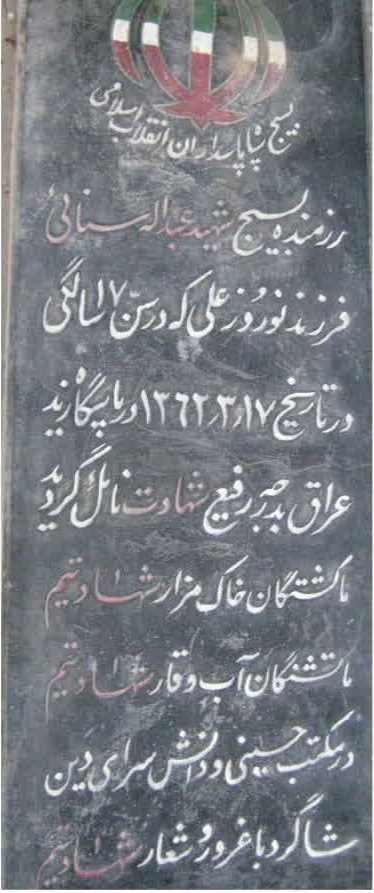 بسیج سپاه پاسداران انقلاب اسلامی
رزمنده بسیج شهید عبداله سنائی
فرزند نوروز علی که در سن ۱۷ سالگی
در تاریخ ۱۳۶۲٫۳٫۱۷ در پاسگاه زید
عراق بدرجه رفیع شهادت نائل گردید
ما کشتگان خاک مزار شهادتیم
ما تشنگان آب وقار شهادتیم
در مکتب حسینی و دانش سرای دین
شاگرد با غرور و شعار شهادتیم